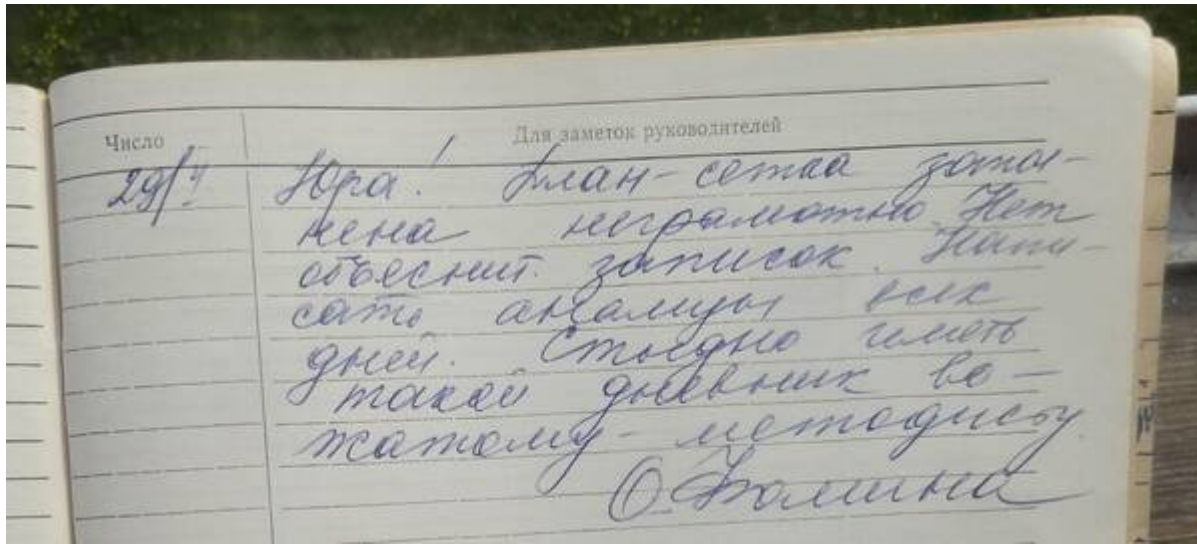 Число Для заметок руководителей
29/V Юра! План-сетка запол-
нена неграмотно. Нет
объяснит. записок. Напи-
сать анализы всех
дней. Стыдно иметь
такой дневник во-
жатому-методисту.
О. Фомина